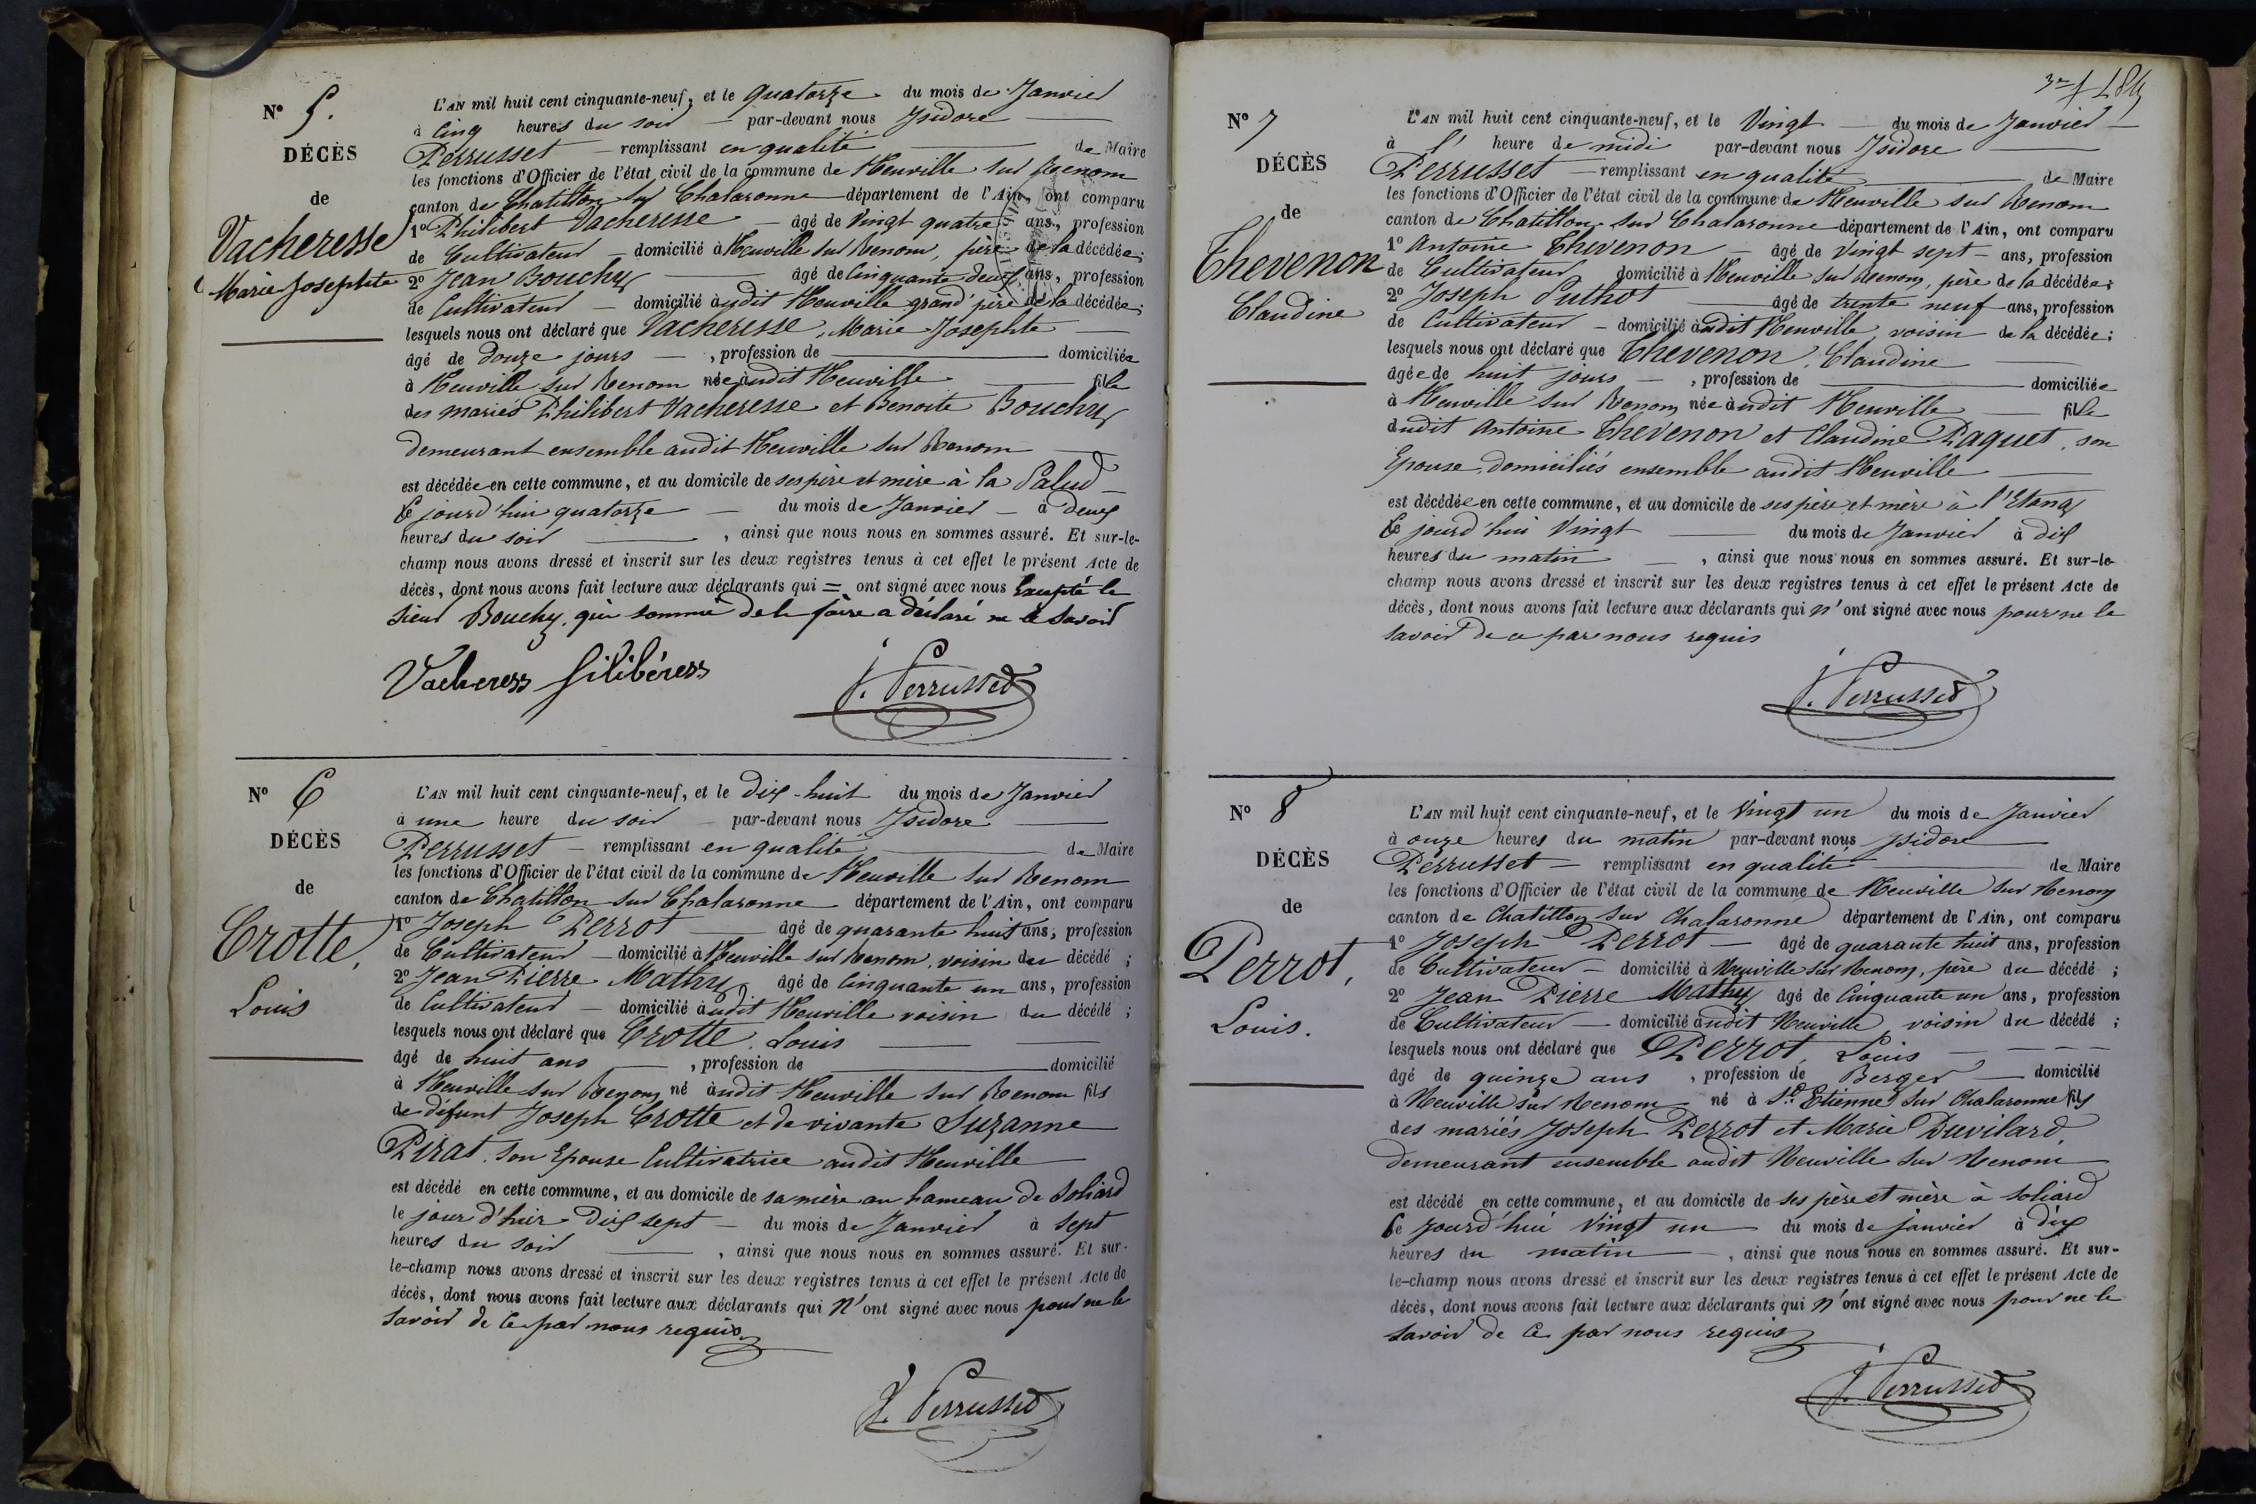 N° 5.
DÉCÈS
de
Vacheresse
Marie Josephte
L'AN mil huit cent cinquante-neuf, et le quatorze du mois de Janvier
à cinq heures du soir par-devant nous Isidore
Perrusset remplissant en qualité de Maire
les fonctions d'Officier de l'état civil de la commune de Neuville sur Renom
canton de Chatillon sur Chalaronne département de l'Ain, ont comparu
1° Philibert Vacheresse âgé de vingt quatre ans, profession
de Cultivateur domicilié à Neuville sur Renom, père de la décédée;
2° Jean Bouchy âgé de Cinquante deux ans, profession
de Cultivateur domicilié audit Neuville grand'père de la décédée;
lesquels nous ont déclaré que Vacheresse, Marie Josephte
âgé de douze jours, profession de domiciliée
à Neuville sur Renom née audit Neuville fille
des mariés Philibert Vacheresse et Benoite Bouchy
demeurant ensemble audit Neuville sur Renom
est décédée en cette commune, et au domicile de ses père et mère à la Palud
le jourd'hui quatorze du mois de Janvier à deux
heures du soir, ainsi que nous nous en sommes assuré. Et sur-le-
champ nous avons dressé et inscrit sur les deux registres tenus à cet effet le présent Acte de
décès, dont nous avons fait lecture aux déclarants qui = ont signé avec nous Excepté le
sieur Bouchy, qui sommé de le faire a déclaré ne le savoir
Vacheress filibéress
J. Perrusset
N° 6
DÉCÈS
de
Crotte,
Louis
L'AN mil huit cent cinquante-neuf, et le dix-huit du mois de Janvier
à une heure du soir par-devant nous Isidore
Perrusset remplissant en qualité de Maire
les fonctions d'Officier de l'état civil de la commune de Neuville sur Renom
canton de Chatillon sur Chalaronne département de l'Ain, ont comparu
1° Joseph Perrot âgé de quarante huit ans, profession
de Cultivateur domicilié à Neuville sur Renom, voisin du décédé;
2° Jean Pierre Mathy âgé de Cinquante un ans, profession
de Cultivateur domicilié audit Neuville voisin du décédé;
lesquels nous ont déclaré que Crotte, Louis
âgé de huit ans, profession de domicilié
à Neuville sur Renom, né audit Neuville sur Renom fils
de défunt Joseph Crotte et de vivante Suzanne
Pirat, son Epouse Cultivatrice audit Neuville
est décédé en cette commune, et au domicile de sa mère au hameau de Soliard
le jour d'hier Dix sept du mois de Janvier à sept
heures du soir, ainsi que nous nous en sommes assuré. Et sur-
le-champ nous avons dressé et inscrit sur les deux registres tenus à cet effet le présent Acte de
décès, dont nous avons fait lecture aux déclarants qui n'ont signé avec nous pour ne le
savoir de ce par nous requis
J. Perrusset
N° 7
DÉCÈS
de
Thevenon
Claudine
L'AN mil huit cent cinquante-neuf, et le Vingt du mois de Janvier
à l' heure de midi par-devant nous Isidore
Perrusset remplissant en qualité de Maire
les fonctions d'Officier de l'état civil de la commune de Neuville sur Renom
canton de Chatillon sur Chalaronne département de l'Ain, ont comparu
1° Antoine Thevenon âgé de vingt sept ans, profession
de Cultivateur domicilié à Neuville sur Renom, père de la décédée;
2° Joseph Puthot âgé de trente neuf ans, profession
de Cultivateur domicilié audit Neuville voisin de la décédée;
lesquels nous ont déclaré que Thevenon, Claudine
âgée de huit jours, profession de domiciliée
à Neuville sur Renom, née audit Neuville fille
dudit Antoine Thevenon et Claudine Paquet, son
Epouse, domiciliés ensemble audit Neuville
est décédée en cette commune, et au domicile de ses père et mère à l'Etang
le jourd'hui Vingt du mois de Janvier à dix
heures du matin, ainsi que nous nous en sommes assuré. Et sur-le-
champ nous avons dressé et inscrit sur les deux registres tenus à cet effet le présent Acte de
décès, dont nous avons fait lecture aux déclarants qui n'ont signé avec nous pour ne le
savoir de ce par nous requis
J. Perrusset
N° 8
DÉCÈS
de
Perrot,
Louis.
L'AN mil huit cent cinquante-neuf, et le Vingt un du mois de Janvier
à onze heures du matin par-devant nous Isidore
Perrusset remplissant en qualité de Maire
les fonctions d'Officier de l'état civil de la commune de Neuville sur Renom
canton de Chatillon sur Chalaronne département de l'Ain, ont comparu
1° Joseph Perrot âgé de quarante huit ans, profession
de Cultivateur domicilié à Neuville sur Renom, père du décédé;
2° Jean Pierre Mathy âgé de Cinquante un ans, profession
de Cultivateur domicilié audit Neuville, voisin du décédé;
lesquels nous ont déclaré que Perrot, Louis
âgé de quinze ans, profession de Berger domicilié
à Neuville sur Renom né à St. Etienne sur Chalaronne fils
des mariés Joseph Perrot et Marie Duvilard,
demeurant ensemble audit Neuville sur Renom
est décédé en cette commune, et au domicile de ses père et mère à Soliard
le jourd'hui vingt un du mois de janvier à dix
heures du matin, ainsi que nous nous en sommes assuré. Et sur-
le-champ nous avons dressé et inscrit sur les deux registres tenus à cet effet le présent Acte de
décès, dont nous avons fait lecture aux déclarants qui n'ont signé avec nous pour ne le
savoir de ce par nous requis
J. Perrusset